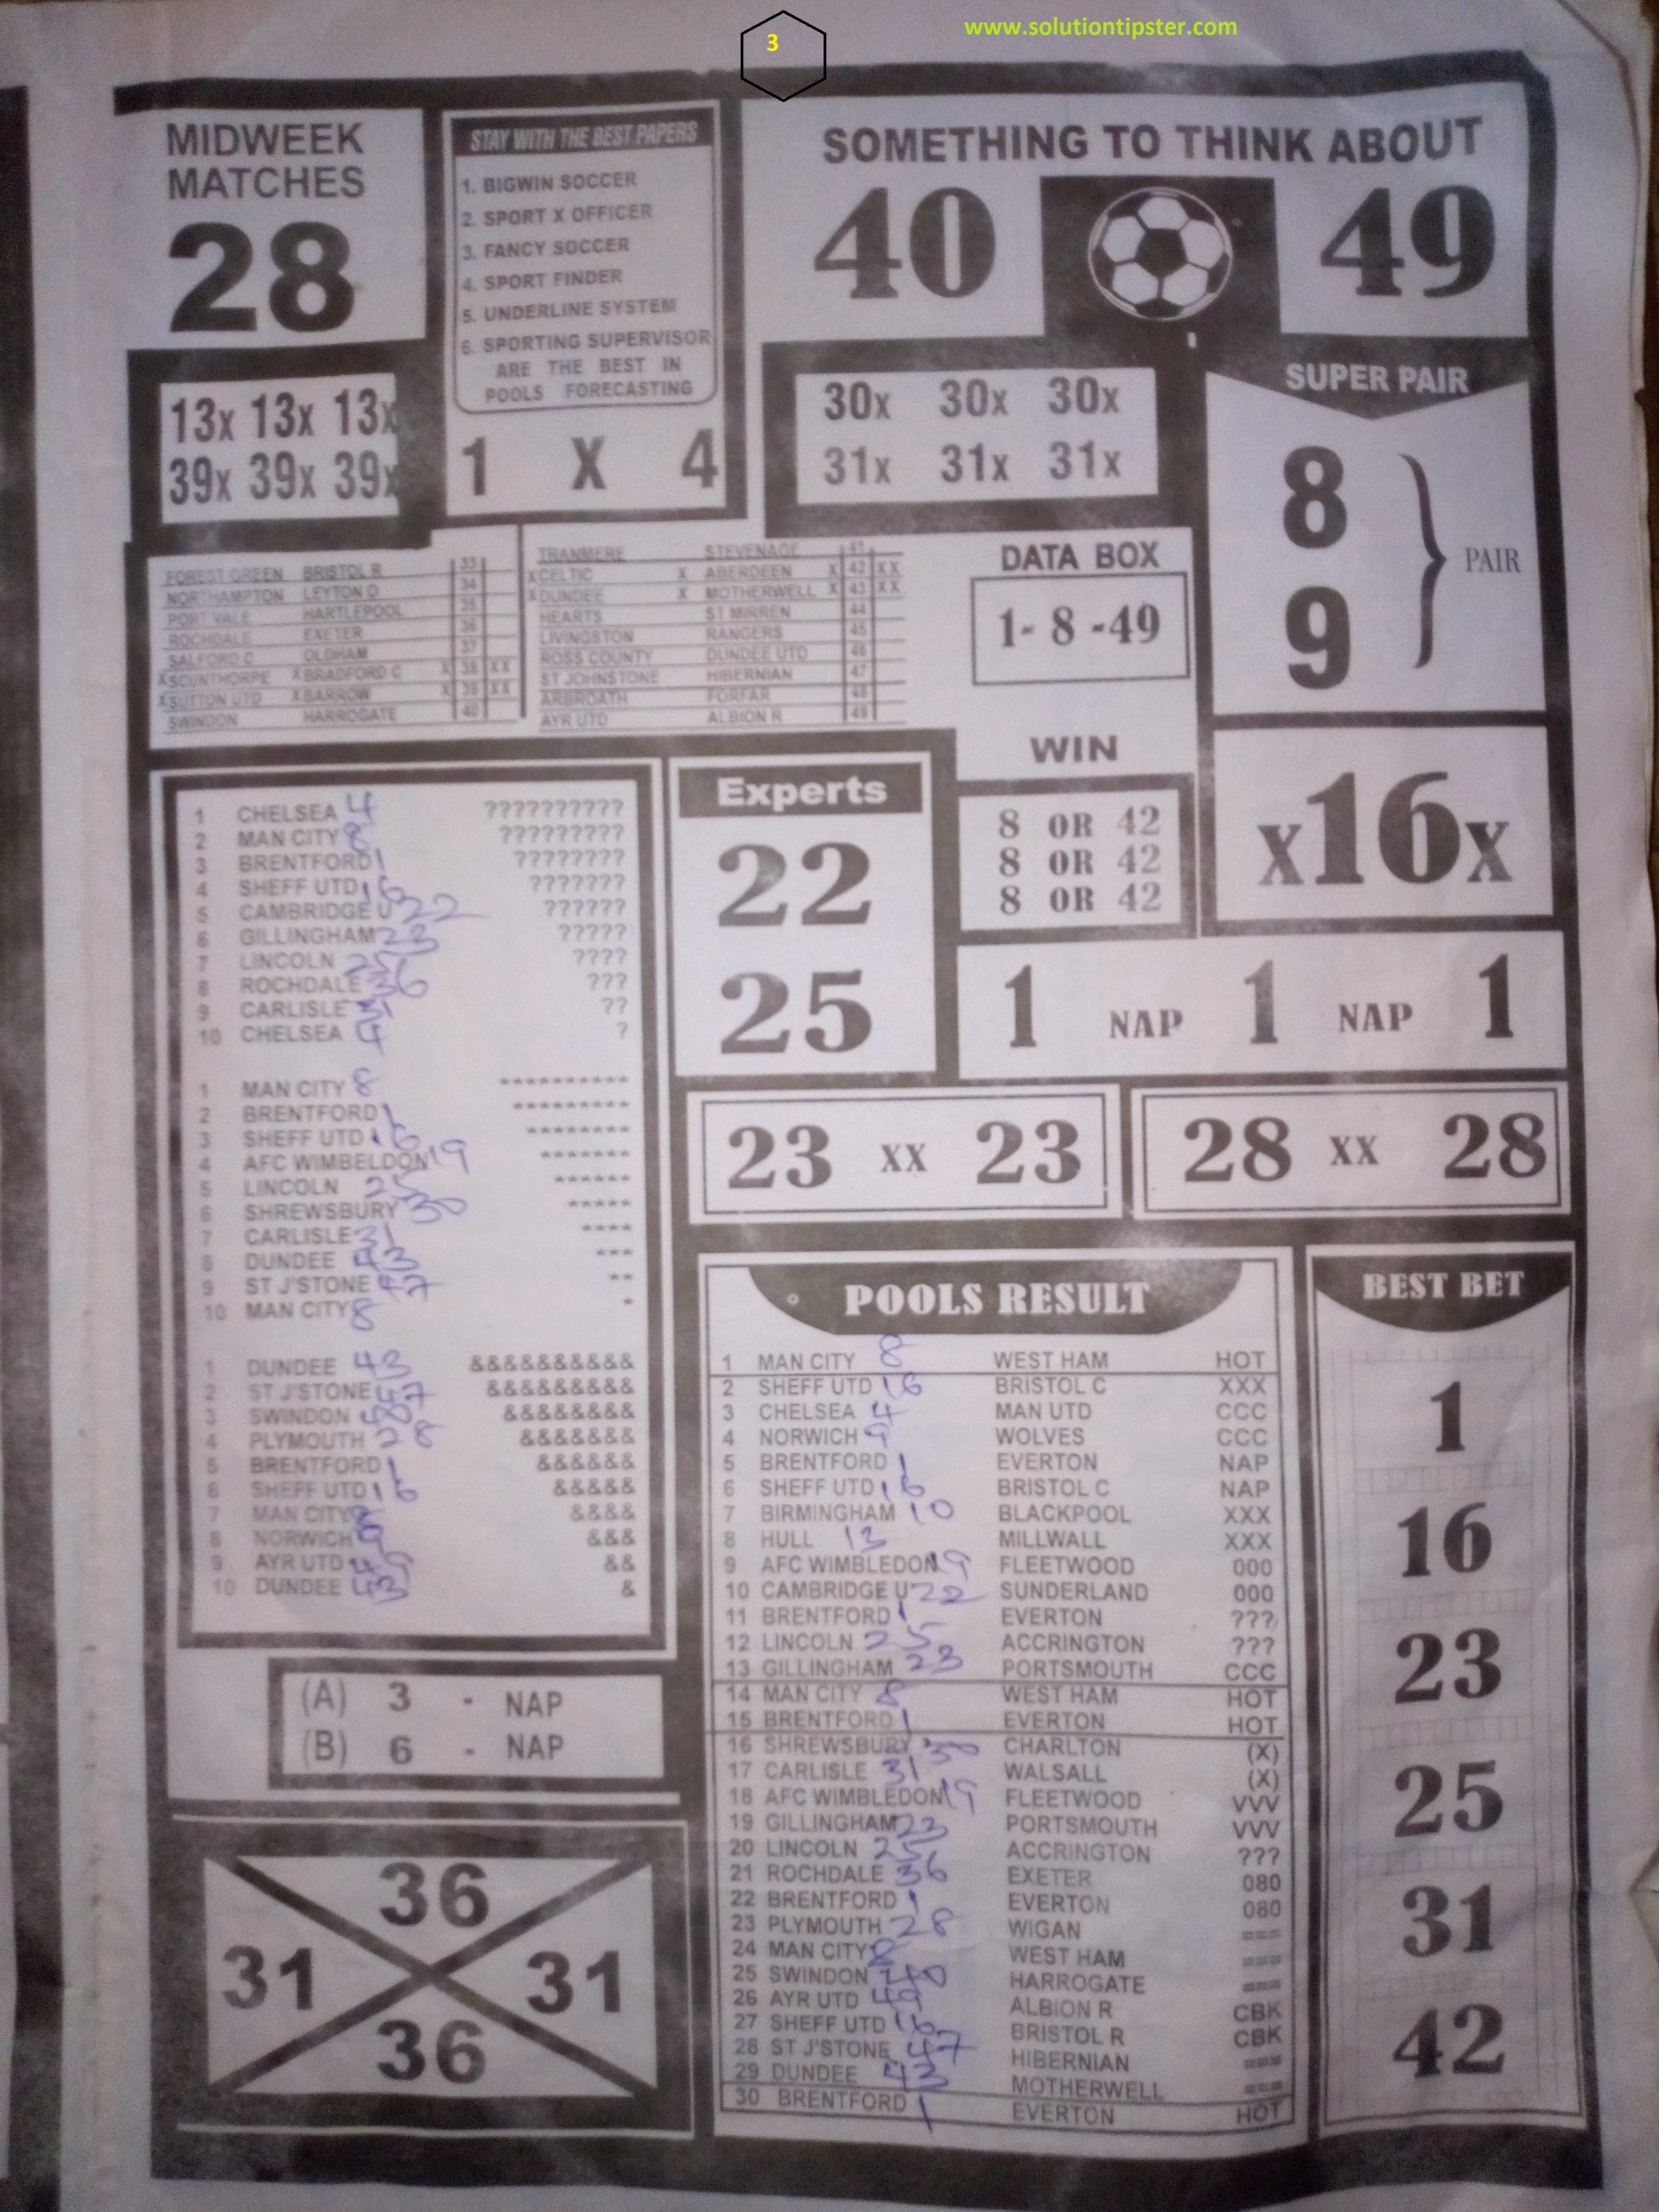 3
www.solutiontipster.com
MIDWEEK
MATCHES
28
STAY WITH THE BEST PAPERS
1. BIGWIN SOCCER
2. SPORT X OFFICER
3. FANCY SOCCER
4. SPORT FINDER
5. UNDERLINE SYSTEM
6. SPORTING SUPERVISOR
ARE THE BEST IN
POOLS FORECASTING
1 X 4
SOMETHING TO THINK ABOUT
40 49
13x 13x 13x
39x 39x 39x
30x 30x 30x
31x 31x 31x
SUPER PAIR
8
9
PAIR
FOREST GREEN BRISTOL R 33
NORTHAMPTON LEYTON O 34
PORT VALE HARTLEPOOL 35
ROCHDALE EXETER 36
SALFORD C OLDHAM 37
X SCUNTHORPE X BRADFORD C X 38 XX
X SUTTON UTD X BARROW X 39 XX
SWINDON HARROGATE 40
TRANMERE STEVENAGE 41
X CELTIC X ABERDEEN X 42 XX
X DUNDEE X MOTHERWELL X 43 XX
HEARTS ST MIRREN 44
LIVINGSTON RANGERS 45
ROSS COUNTY DUNDEE UTD 46
ST JOHNSTONE HIBERNIAN 47
ARBROATH FORFAR 48
AYR UTD ALBION R 49
DATA BOX
1- 8 -49
WIN
8 OR 42
8 OR 42
8 OR 42
x16x
1 CHELSEA 4 ??????????
2 MAN CITY 8 ?????????
3 BRENTFORD 1 ????????
4 SHEFF UTD 16 ???????
5 CAMBRIDGE U 22 ??????
6 GILLINGHAM 23 ?????
7 LINCOLN 25 ????
8 ROCHDALE 36 ???
9 CARLISLE 31 ??
10 CHELSEA 4 ?
1 MAN CITY 8 **********
2 BRENTFORD 1 *********
3 SHEFF UTD 16 ********
4 AFC WIMBELDON 19 *******
5 LINCOLN 25 ******
6 SHREWSBURY 30 *****
7 CARLISLE 31 ****
8 DUNDEE 43 ***
9 ST J'STONE 47 **
10 MAN CITY 8 *
1 DUNDEE 43 &&&&&&&&&&
2 ST J'STONE 47 &&&&&&&&&
3 SWINDON 40 &&&&&&&&
4 PLYMOUTH 28 &&&&&&&
5 BRENTFORD 1 &&&&&&
6 SHEFF UTD 16 &&&&&
7 MAN CITY 8 &&&&
8 NORWICH 9 &&&
9 AYR UTD 49 &&
10 DUNDEE 43 &
Experts
22
25
1 NAP 1 NAP 1
23 XX 23
28 XX 28
(A) 3 - NAP
(B) 6 - NAP
36
31 31
36
POOLS RESULT
1 MAN CITY 8 WEST HAM HOT
2 SHEFF UTD 16 BRISTOL C XXX
3 CHELSEA 4 MAN UTD CCC
4 NORWICH 9 WOLVES CCC
5 BRENTFORD 1 EVERTON NAP
6 SHEFF UTD 16 BRISTOL C NAP
7 BIRMINGHAM 10 BLACKPOOL XXX
8 HULL 13 MILLWALL XXX
9 AFC WIMBLEDON 19 FLEETWOOD 000
10 CAMBRIDGE U 22 SUNDERLAND 000
11 BRENTFORD 1 EVERTON ???
12 LINCOLN 25 ACCRINGTON ???
13 GILLINGHAM 23 PORTSMOUTH CCC
14 MAN CITY 8 WEST HAM HOT
15 BRENTFORD 1 EVERTON HOT
16 SHREWSBURY 30 CHARLTON (X)
17 CARLISLE 31 WALSALL (X)
18 AFC WIMBLEDON 19 FLEETWOOD VVV
19 GILLINGHAM 23 PORTSMOUTH VVV
20 LINCOLN 25 ACCRINGTON ???
21 ROCHDALE 36 EXETER 080
22 BRENTFORD 1 EVERTON 080
23 PLYMOUTH 28 WIGAN ===
24 MAN CITY 8 WEST HAM ===
25 SWINDON 40 HARROGATE ===
26 AYR UTD 49 ALBION R CBK
27 SHEFF UTD 16 BRISTOL R CBK
28 ST J'STONE 47 HIBERNIAN ===
29 DUNDEE 43 MOTHERWELL ===
30 BRENTFORD 1 EVERTON HOT
BEST BET
1
16
23
25
31
42